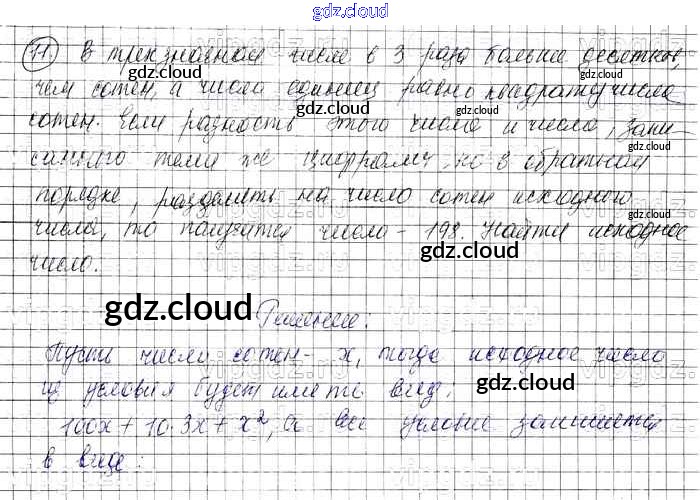 gdz.cloud
11. В трехзначном числе в 3 раза больше десятков,
чем сотен, а число единиц равно квадрату числа
сотен. Если разность этого числа и числа, запи-
санного теми же цифрами, но в обратном
порядке, разделить на число сотен исходного
числа, то получится число - 198. Найти исходное
число.
gdz.cloud Решение:
Пусть число сотен - x, тогда исходное число
из условия будет иметь вид:
100x + 10·3x + x², а все условие запишется
в виде: